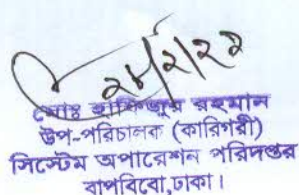 ২৮/২/২২
মোঃ হাফিজুর রহমান
উপ-পরিচালক (কারিগরী)
সিস্টেম অপারেশন পরিদপ্তর
বাপবিবো,ঢাকা।